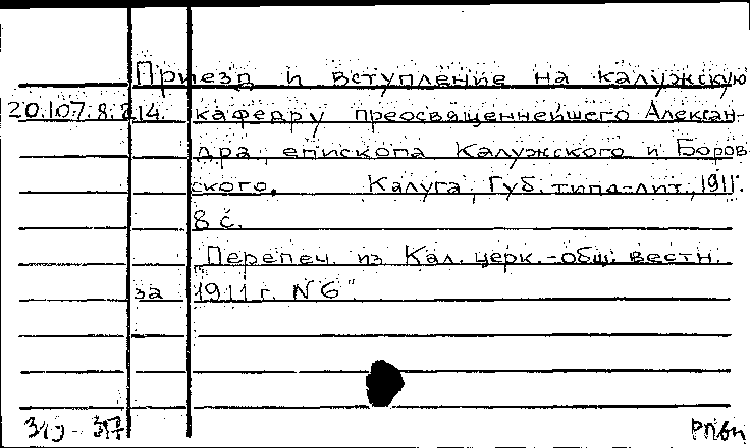 Приезд и вступление на калужскую
20.107.8.214. кафедру преосвященнейшего Алексан-
дра, епископа Калужского и Боров
ского. Калуга, Губ. типо-лит., 1911.
8 с.
"Перепеч. из Кал. церк.-общ. вестн.
за 1911 г. N 6".